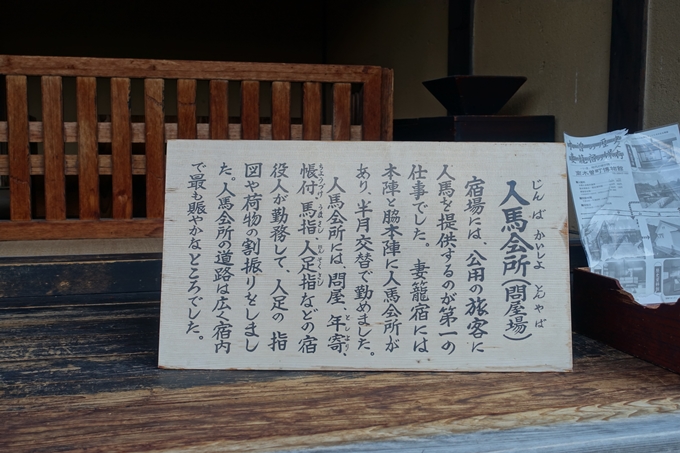 人馬会所(問屋場)
じんばかいしよ とんやば
宿場には、公用の旅客に
人馬を提供するのが第一の
仕事でした。妻籠宿には
本陣と脇本陣に人馬会所が
あり、半月交替で勤めました。
人馬会所には、問屋、年寄、
としより
帳付、馬指、人足指などの宿
役人が勤務して、人足の指
図や荷物の割振りをしまし
た。人馬会所の道路は広く宿内
で最も賑やかなところでした。